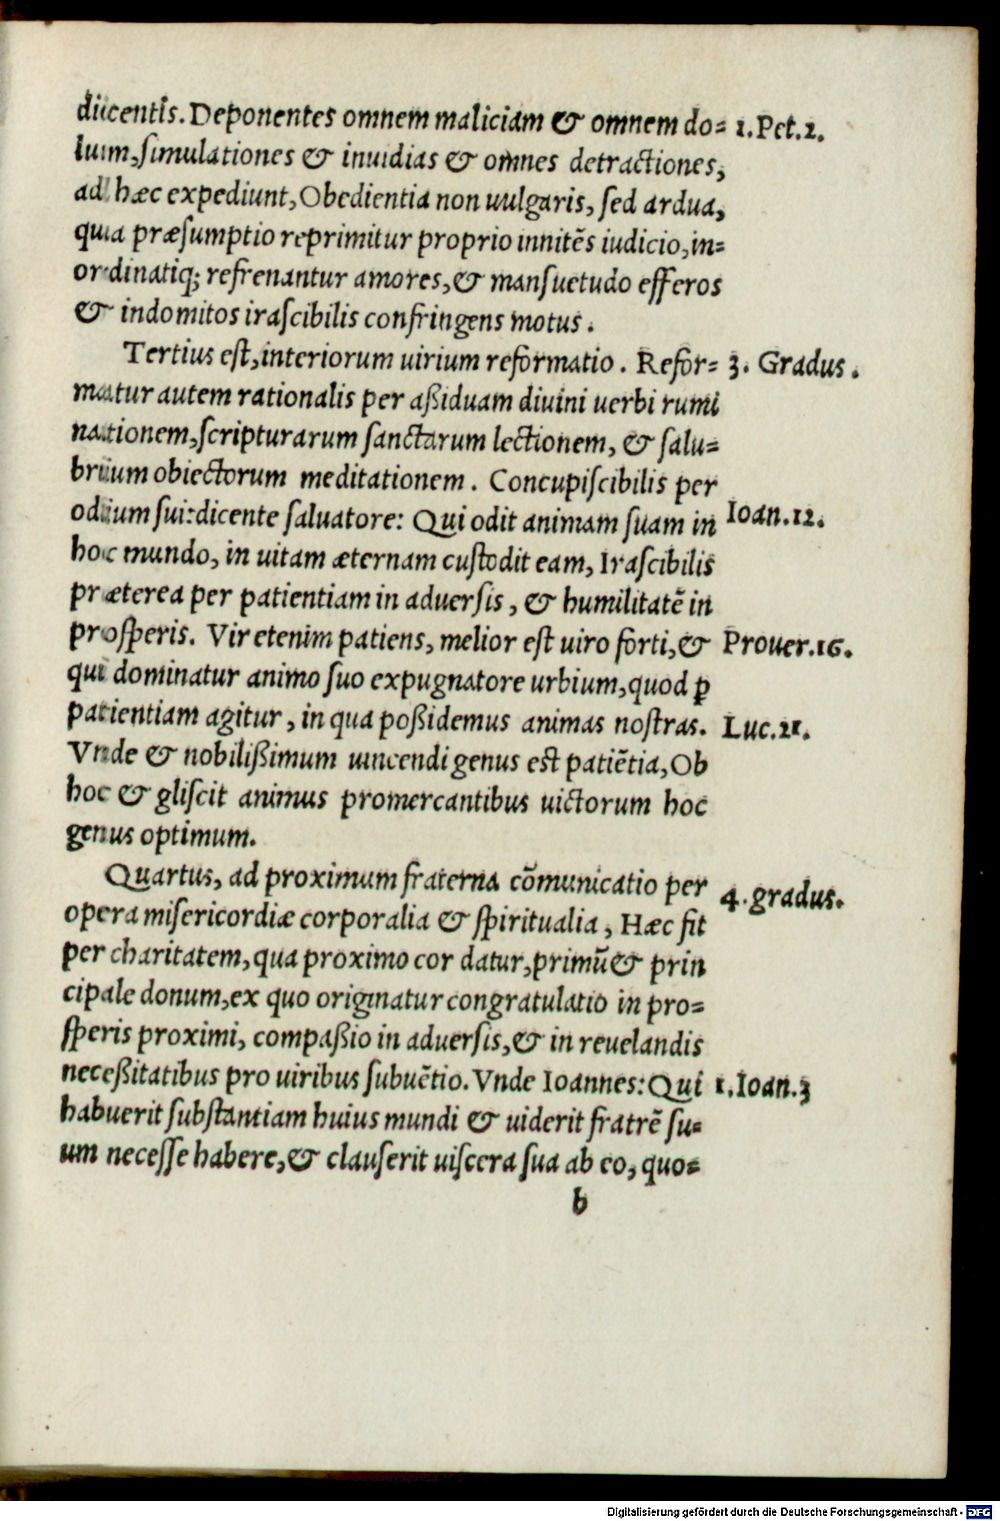 dicentis. Deponentes omnem maliciam & omnem do= 1. Pet. 2.
lum, simulationes & inuidias & omnes detractiones,
ad hæc expediunt, Obedientia non uulgaris, sed ardua,
quia præsumptio reprimitur proprio innitẽs iudicio, in=
ordinatiq; refrenantur amores, & mansuetudo efferos
& indomitos irascibilis confringens motus.
Tertius est, interiorum uirium reformatio. Refor= 3. Gradus.
matur autem rationalis per aßiduam diuini uerbi rumi
nationem, scripturarum sanctarum lectionem, & salu=
brium obiectorum meditationem. Concupiscibilis per
odium sui: dicente saluatore: Qui odit animam suam in Ioan. 12.
hoc mundo, in uitam æternam custodit eam, Irascibilis
præterea per patientiam in aduersis, & humilitatẽ in
prosperis. Vir etenim patiens, melior est uiro forti, & Prouer. 16.
qui dominatur animo suo expugnatore urbium, quod ꝑ
patientiam agitur, in qua poßidemus animas nostras. Luc. 21.
Vnde & nobilißimum uincendi genus est patiẽtia, Ob
hoc & gliscit animus promercantibus uictorum hoc
genus optimum.
Quartus, ad proximum fraterna cõmunicatio per 4. gradus.
opera misericordiæ corporalia & spiritualia, Hæc fit
per charitatem, qua proximo cor datur, primũ & prin
cipale donum, ex quo originatur congratulatio in pro=
speris proximi, compaßio in aduersis, & in reuelandis
neceßitatibus pro uiribus subuẽtio. Vnde Ioannes: Qui 1. Ioan. 3
habuerit substantiam huius mundi & uiderit fratrẽ su=
um necesse habere, & clauserit uiscera sua ab eo, quo=
b
Digitalisierung gefördert durch die Deutsche Forschungsgemeinschaft - DFG